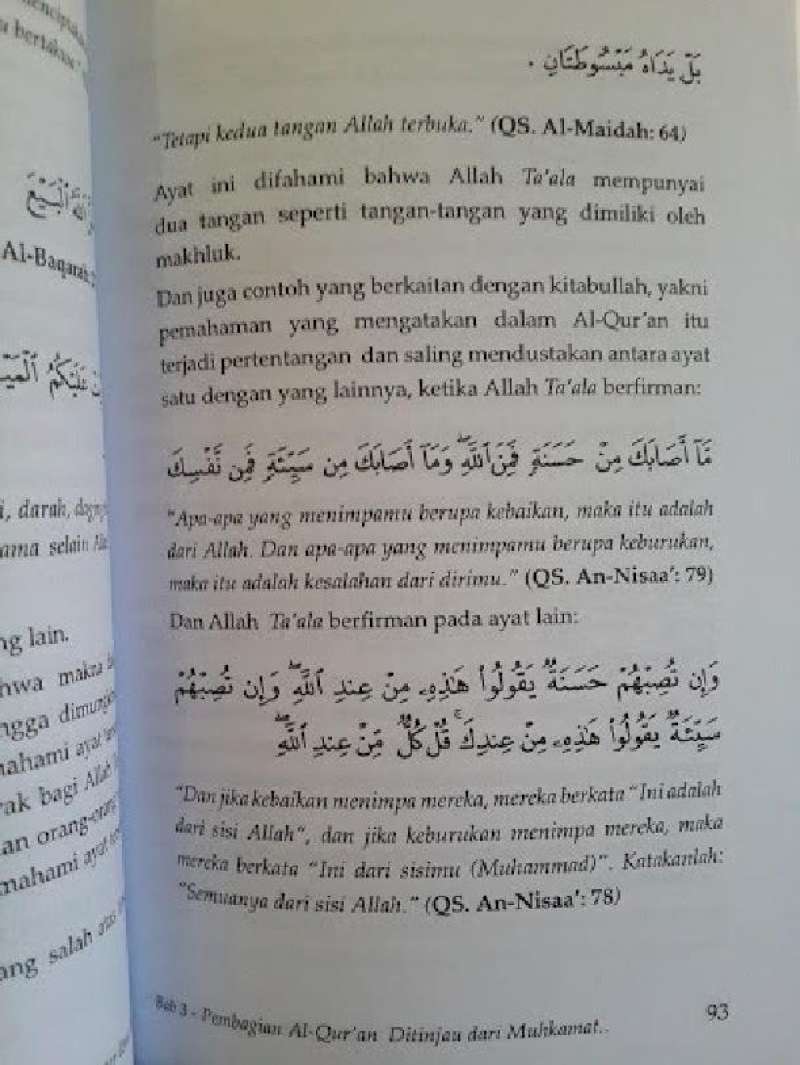 بَلْ يَدَاهُ مَبْسُوطَتَانِ .
"Tetapi kedua tangan Allah terbuka." (QS. Al-Maidah: 64)
Ayat ini difahami bahwa Allah Ta'ala mempunyai
dua tangan seperti tangan-tangan yang dimiliki oleh
makhluk.
Dan juga contoh yang berkaitan dengan kitabullah, yakni
pemahaman yang mengatakan dalam Al-Qur'an itu
terjadi pertentangan dan saling mendustakan antara ayat
satu dengan yang lainnya, ketika Allah Ta'ala berfirman:
مَّآ أَصَابَكَ مِنْ حَسَنَةٍ فَمِنَ ٱللَّهِ ۖ وَمَآ أَصَابَكَ مِن سَيِّئَةٍ فَمِن نَّفْسِكَ
"Apa-apa yang menimpamu berupa kebaikan, maka itu adalah
dari Allah. Dan apa-apa yang menimpamu berupa keburukan,
maka itu adalah kesalahan dari dirimu." (QS. An-Nisaa': 79)
Dan Allah Ta'ala berfirman pada ayat lain:
وَإِن تُصِبْهُمْ حَسَنَةٌ يَقُولُوا۟ هَـٰذِهِۦ مِنْ عِندِ ٱللَّهِ ۖ وَإِن تُصِبْهُمْ
سَيِّئَةٌ يَقُولُوا۟ هَـٰذِهِۦ مِنْ عِندِكَ ۚ قُلْ كُلٌّ مِّنْ عِندِ ٱللَّهِ ۖ
"Dan jika kebaikan menimpa mereka, mereka berkata "Ini adalah
dari sisi Allah", dan jika keburukan menimpa mereka, maka
mereka berkata "Ini dari sisimu (Muhammad)". Katakanlah:
"Semuanya dari sisi Allah." (QS. An-Nisaa': 78)
Bab 3 - Pembagian Al-Qur'an Ditinjau dari Muhkamat..
93
u bertakwa
ٱللَّهُ ٱلْبَيْعَ
Al-Baqarah:
عَلَيْكُمُ
i, darah, daging
ama selain
ng lain.
hwa makna
ngga dimungkin
nahami ayat
rak bagi Allah
an orang-orang
mahami ayat
ang salah atas